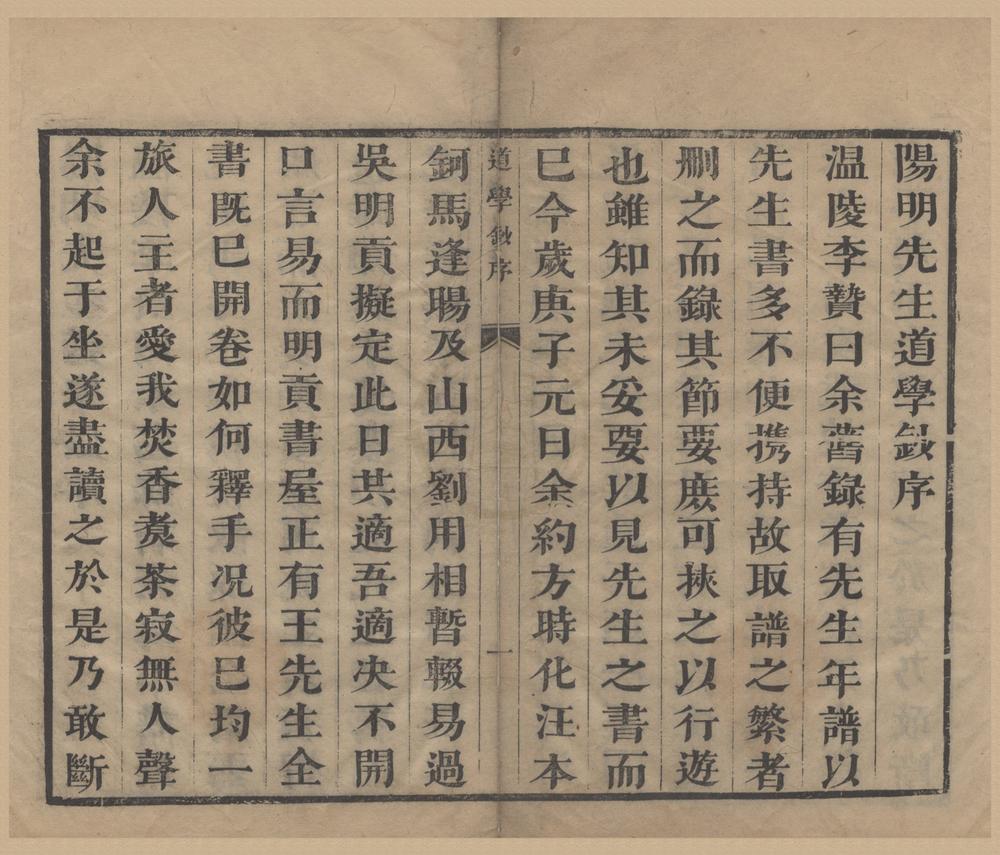 陽明先生道學鈔序
温陵李贄曰余舊錄有先生年譜以
先生書多不便攜持故取譜之繁者
刪之而錄其節要庶可挾之以行遊
也雖知其未妥要以見先生之書而
已今歲庚子元日余約方時化汪本
道學鈔序
一
鈳馬逢暘及山西劉用相暫輟易過
吳明貢擬定此日共適吾適决不開
口言易而明貢書屋正有王先生全
書既已開卷如何釋手况彼已均一
旅人主者愛我焚香煑茶寂無人聲
余不起于坐遂盡讀之於是乃敢斷